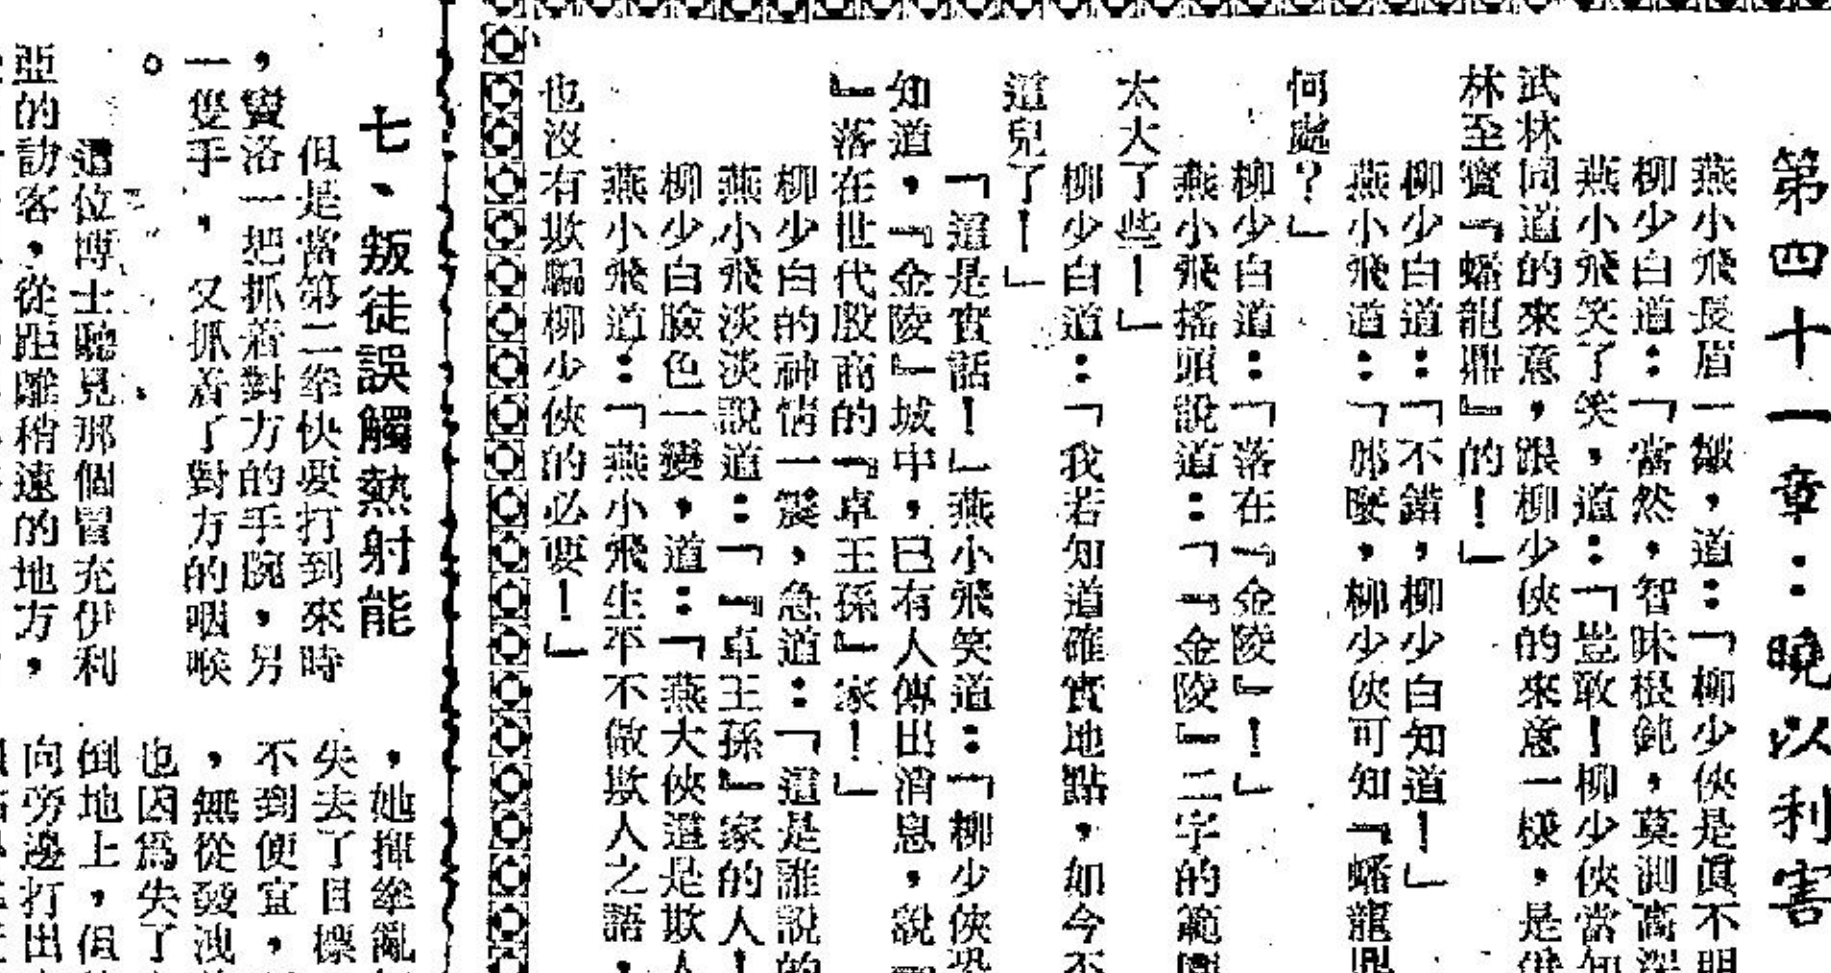 第四十一章：曉以利害
燕小飛長眉一皺，道：「柳少俠是眞不明
柳少白道：「當然，智昧根鈍，莫測高深
燕小飛笑了笑，道：「豈敢！柳少俠當知
武林同道的來意，跟柳少俠的來意一樣，是
林至寶『蟠龍鼎』的！」
柳少白道：「不錯，柳少白知道！」
燕小飛道：「那麼，柳少俠可知『蟠龍鼎
何處？」
柳少白道：「落在『金陵』！」
燕小飛搖頭說道：「『金陵』二字的範圍
太大了些！」
柳少白道：「我若知道確實地點，如今不
道兒了！」
「這是實話！」燕小飛笑道：「柳少俠恐
知道，『金陵』城中，已有人傳出消息，說『
』落在世代殷商的『卓王孫』家！」
柳少白的神情一震，急道：「這是誰說的
燕小飛淡淡說道：「『卓王孫』家的人！
柳少白臉色一變，道：「燕大俠這是欺人
燕小飛道：「燕小飛生平不做欺人之語，
也沒有欺騙柳少俠的必要！」
七、叛徒誤觸熱射能
但是當第二拳快要打到來時
，寶洛一把抓着對方的手腕，另
一隻手，又抓着了對方的咽喉
。
這位博士聽見那個冒充伊利
亞的訪客，從距離稍遠的地方，
，她揮拳亂
失去了目標
不到便宜，
，無從發洩
也因爲失了
倒地上，但
向旁邊打出